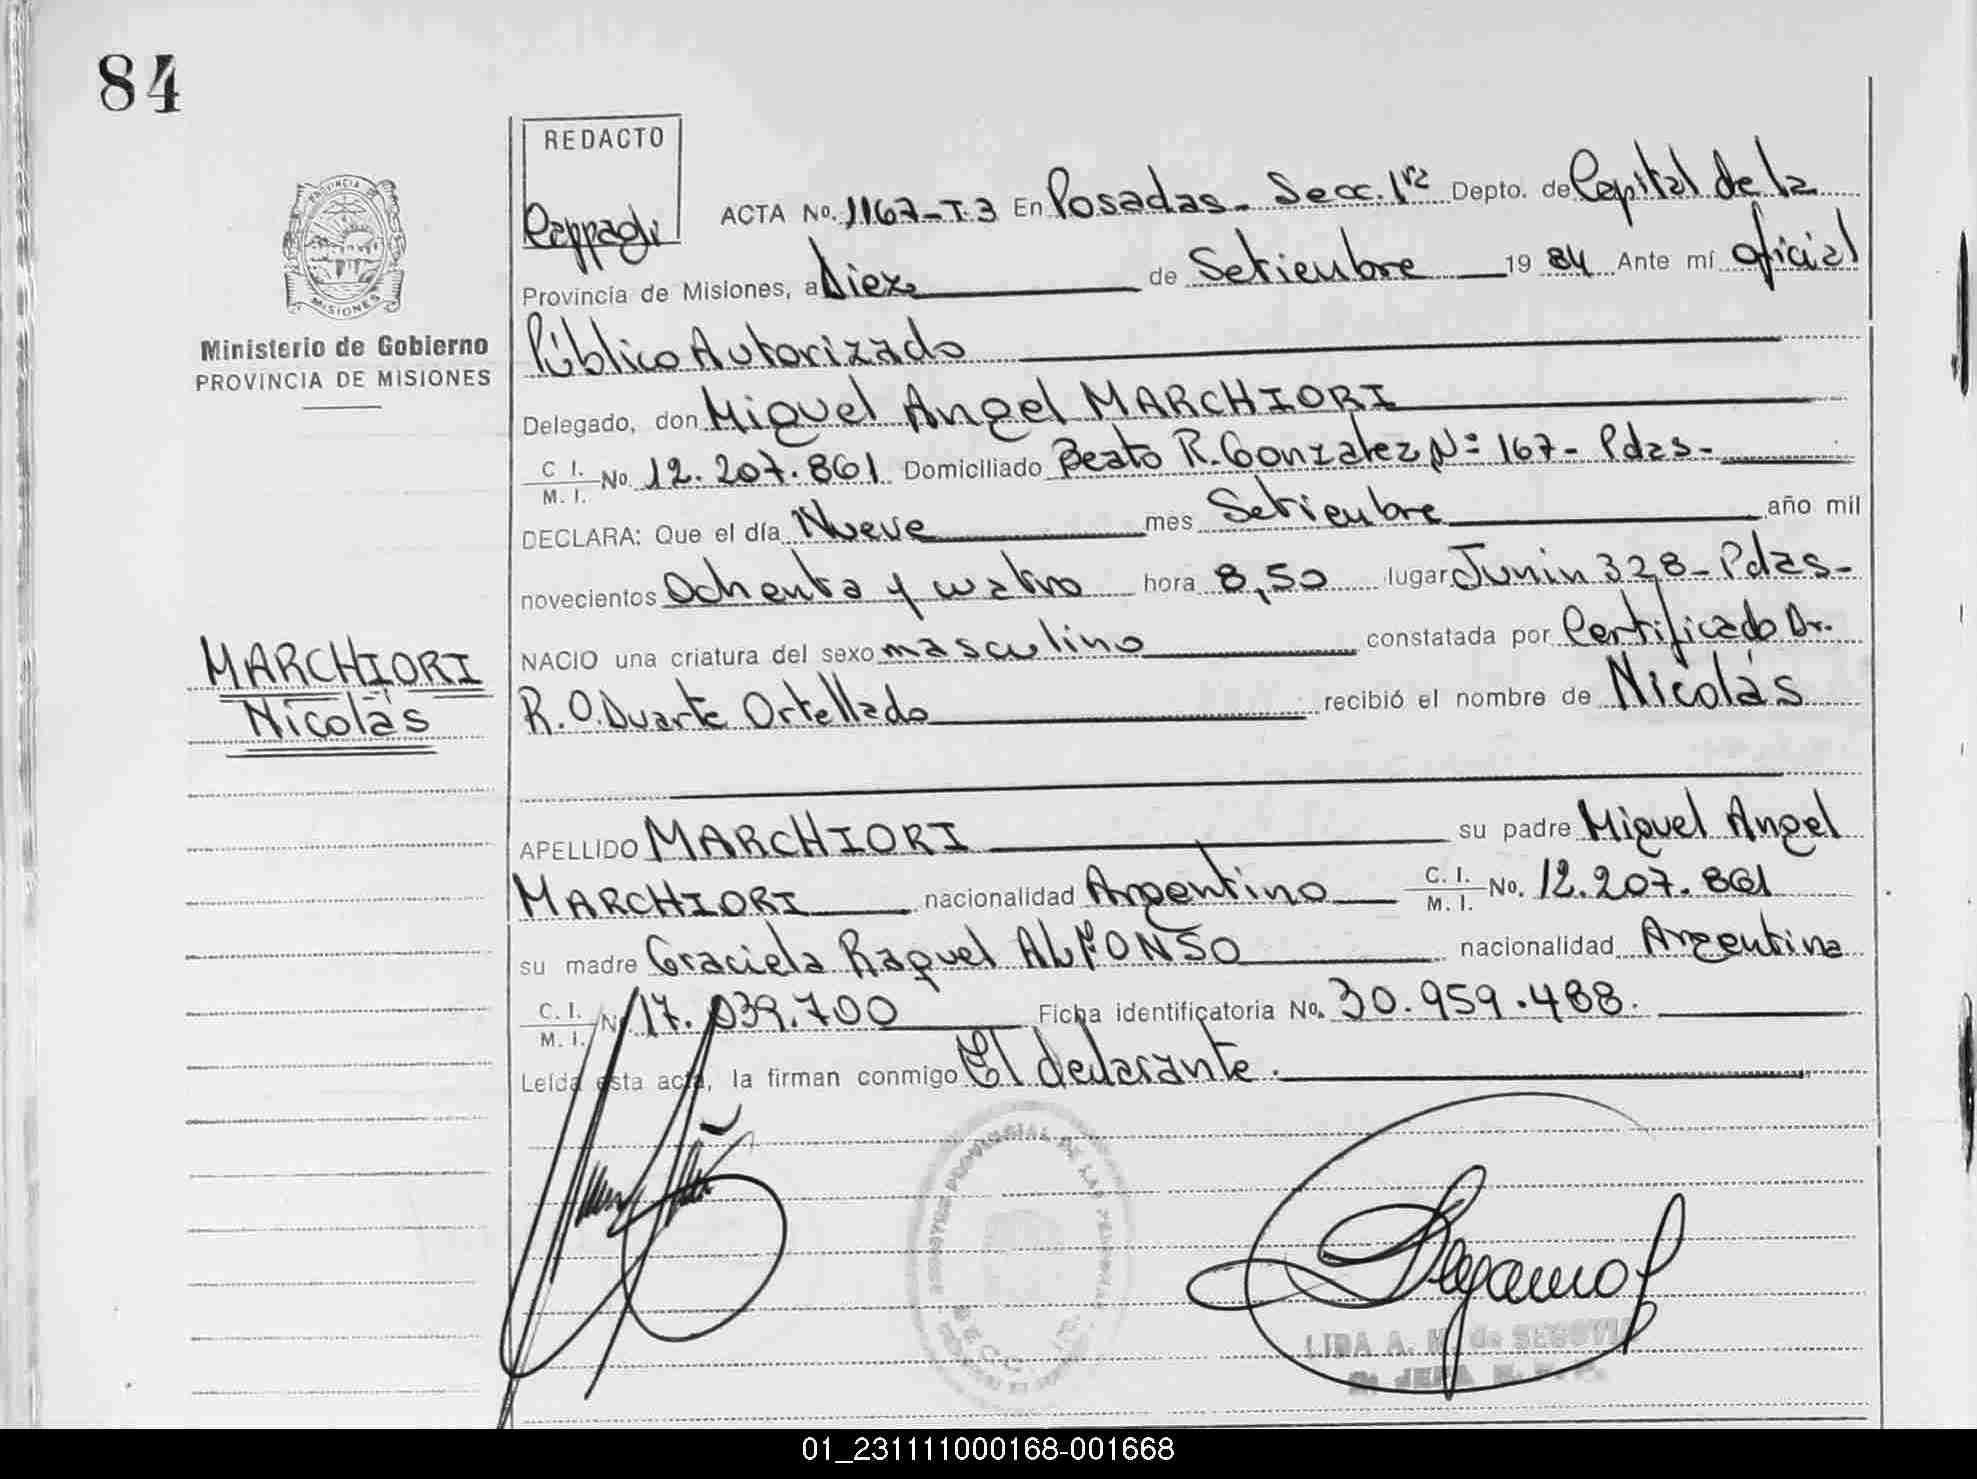 84
REDACTO
PROVINCIA DE MISIONES
Ministerio de Gobierno
PROVINCIA DE MISIONES
ACTA No. 1167-T.3 En Posadas - Secc. 1ra Depto. de Capital de la
Provincia de Misiones, a Diez de Setiembre 19 84 Ante mí Oficial
Público Autorizado
Delegado, don Miguel Angel MARCHIORI
C. I. M. I. No. 12.207.861 Domiciliado Beato R. Gonzalez Nº 167 - Pdas -
DECLARA: Que el día Nueve mes Setiembre año mil
novecientos Ochenta y cuatro hora 8,50 lugar Junin 328 - Pdas -
NACIO una criatura del sexo masculino constatada por Certificado Dr.
R. O. Duarte Ortellado recibió el nombre de Nicolás
MARCHIORI
Nicolás
APELLIDO MARCHIORI su padre Miguel Angel
MARCHIORI nacionalidad Argentino C. I. M. I. No. 12.207.861
su madre Graciela Raquel ALFONSO nacionalidad Argentina
C. I. M. I. No 17.039.700 Ficha identificatoria No. 30.959.488.
Leída esta acta, la firman conmigo El declarante.
LIDA A. M. de SEGOVIA
01_231111000168-001668